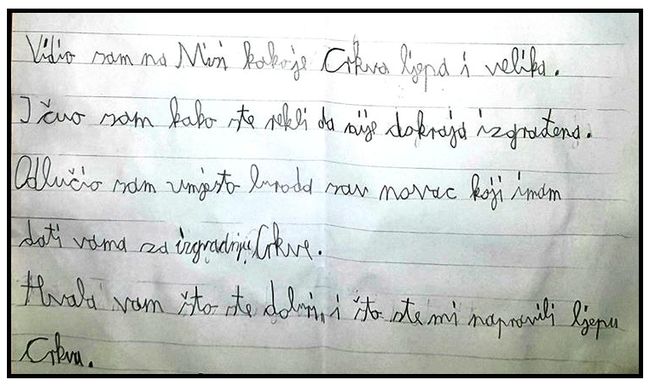 Vidio sam na Misi kako je Crkva ljepa i velika.
I čuo sam kako ste rekli da nije dokraja izgrađena.
Odlučio sam umjesto broda sav novac koji imam
dati vama za izgradnju Crkve.
Hvala vam što ste dobri, i što ste mi napravili ljepu
Crkvu.